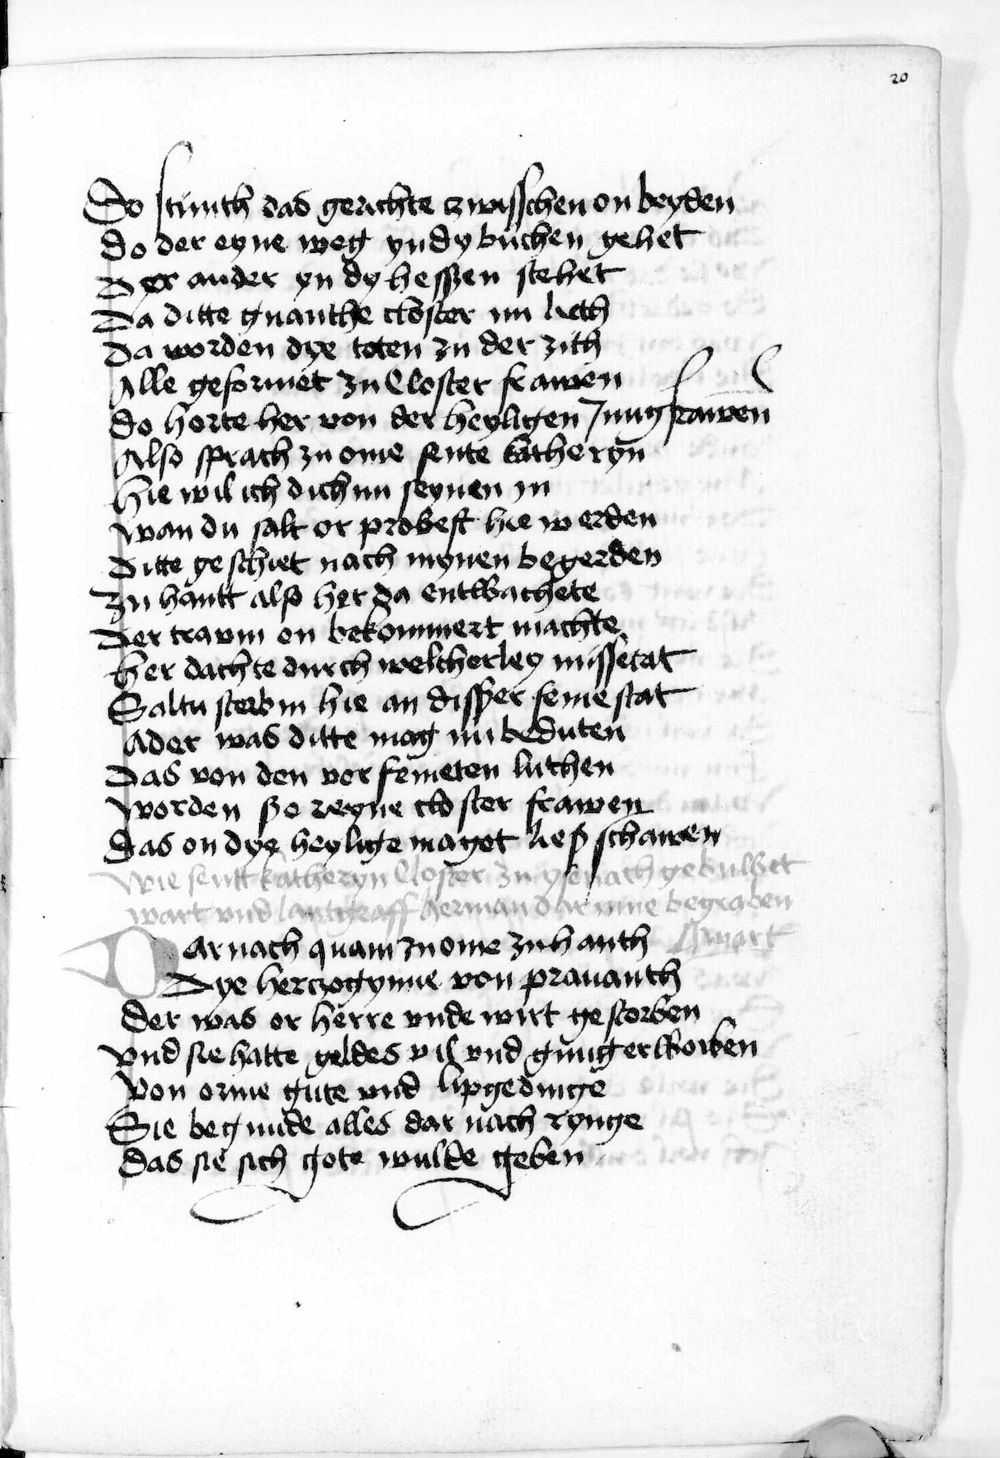 20
Do stunth das gerichte zwisschen on beyden
do der eyne weg yn dy buchen gehet
Der ander yn dy hessen stehet
Da ditte gnanthe closter nu lieth
Da worden dye toten zu der zith
Alle geformet zu Closter frawen
do horte her von der heyligen Jungfrawen
Also sprach zu ome sente katheryn
hie wil ich dich nu seynen in
wan du salt or probest hie werden
Ditte geschiet nach mynen begerden
zu hantt also her da entwachete
Der traum en bekommert machte
her dachte durch welcherley missetat
Saltu sterbin hie an disser feme stat
Ader was ditte mag nu beduten
Das von den verfemeten luthen
worden szo reyne closter frawen
das on dye heylige maget liesz schawen
wie sentt katheryn Closter zu ysenach gebuwet
wart vnd lantgraff herman dar inne begraben
wart
Darnach quam zu ome zu hanth
Dye herczogynne von prauanth
der was or herre vnde wirt gestorben
vnd sie hatte geldes vil vnd gnug erworben
von orme gute vnd lipgedinge
Sie begunde alles dar nach rynge
das sie sich gote wulde geben